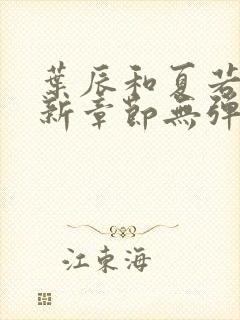 葉辰和夏若
新章節無彈
江東海